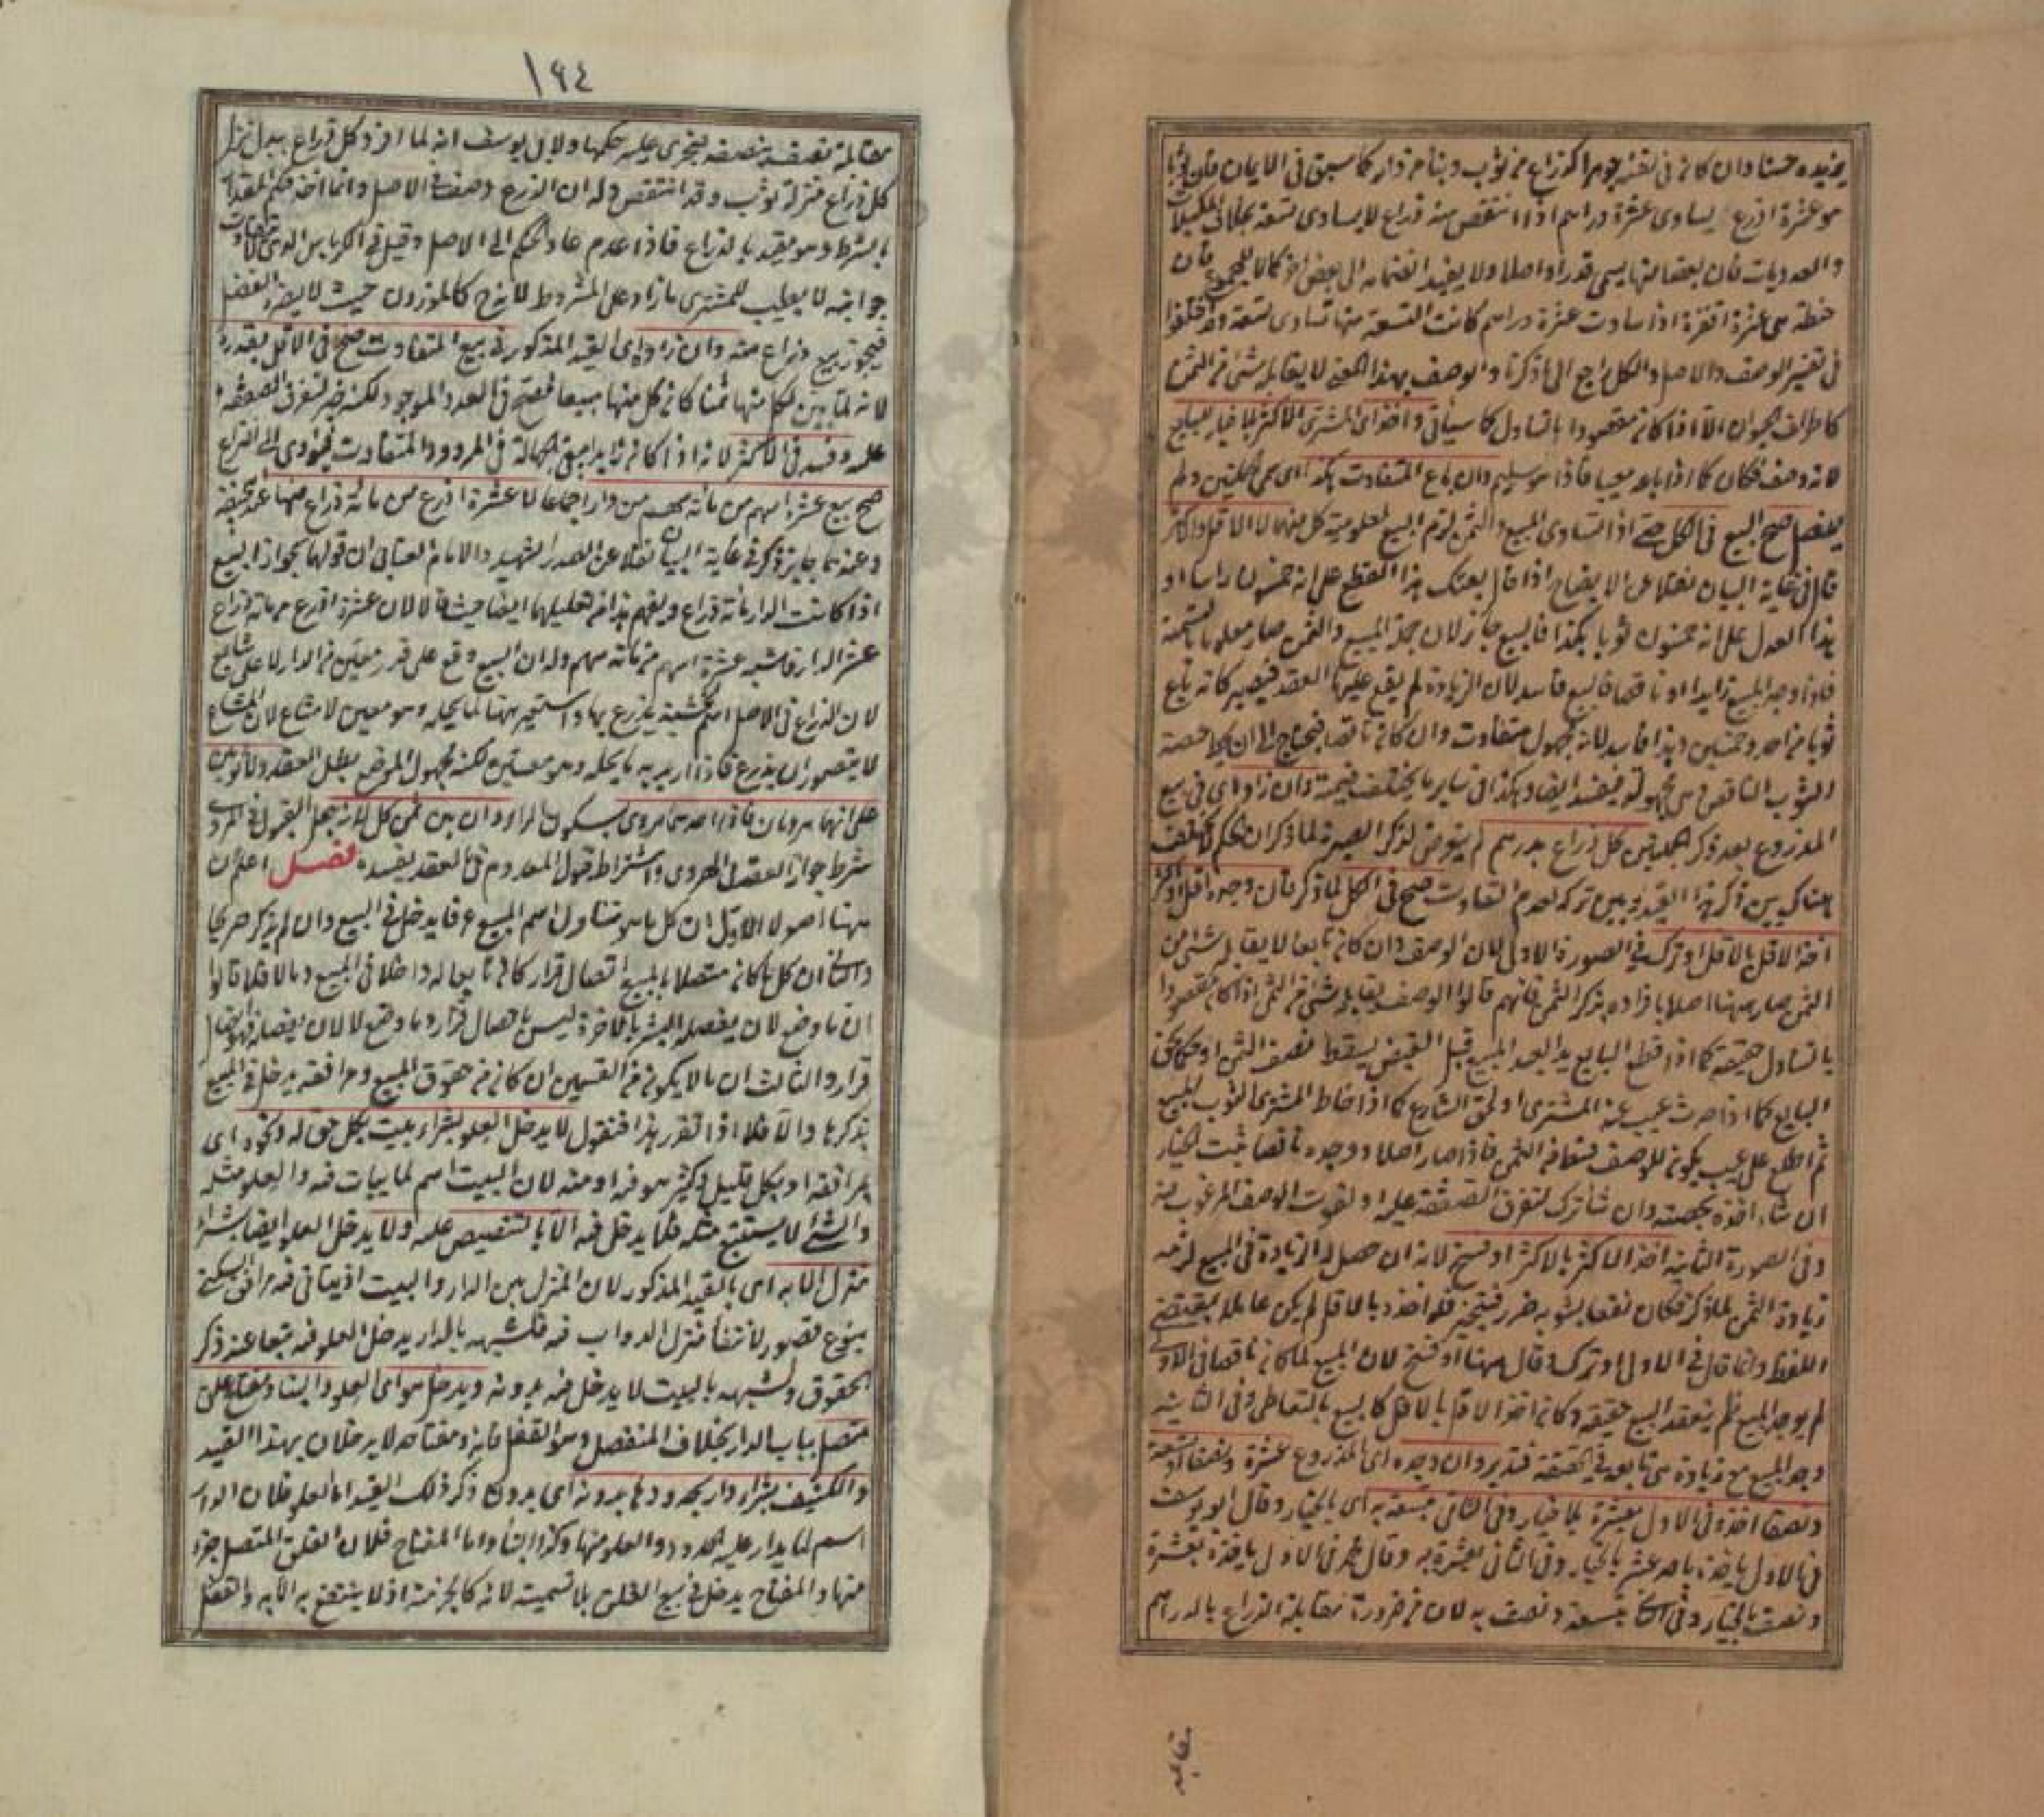 يزيده حسنا وان كان في نفسه جوهرا كذراع من ثوب وبناء من دار كما سبق في الايمان فان ثوبا
هو عشرة اذرع يساوى عشرة دراهم اذا انتقص منه ذراع لا يساوى تسعة بخلاف المكيلات
والعدديات فان بعضا منها يسمى قدرا واصلا ولا يفيد انضمامه الى بعض اخر كمالا للمجموع فان
حنطة هى عشرة اقفزة اذا ساوت عشرة دراهم كانت التسعة منها تساوى تسعة وقد اختلفوا
فى تفسير الوصف والاصل والكل راجع الى ما ذكرنا والوصف بهذا المعنى لا يقابله شئ من الثمن
كاطراف الحيوان الا اذا كان مقصودا بالتناول كما سيأتى واخذ اى المشترى الاكثر بلا خيار للبايع
لانه وصف فكان كما اذا باعه معيبا فاذا هو سليم وان باع المتفاوت هكذا اى سمى الجملتين ولم
يفصل صح البيع فى الكل حتى اذا تساوى المبيع والثمن لزم البيع لمعلومية كل منهما لا الاقل والاكثر
قال فى غاية البيان نقلا عن الايضاح اذا قال بعتك هذا القطيع على انه خمسون راسا او
هذا العدل على انه خمسون ثوبا بكذا فالبيع جائز لان جملة المبيع والثمن صار معلوما بالتسمية
فاذا وجد المبيع زايدا او ناقصا فالبيع فاسد لان الزيادة لم يقع عليها العقد فيصير كانه باع
ثوبا من احد وخمسين وهذا فاسد لانه مجهول متفاوت وان كان ناقصا فيحتاج الى ان يحط حصته
الثوب الناقص وهى مجهولة فيفسد ايضا وهكذا فى ساير ما يختلف قيمته وان زاد اى فى بيع
المذروع بعد ذكر الجملتين كل ذراع بدرهم لم يتعرض لذكر الصبرة لما ذكر ان الحكم لا يختلف
هناك بين ذكر هذا القيد وبين تركه لعدم التفاوت صح فى الكل لما ذكر فان وجد اقل او اكثر
اخذ الاقل بالاقل او ترك فى الصورة الاولى لان الوصف وان كان تابعا لا يقابله شئ من
الثمن صار ههنا اصلا بافراده بذكر الثمن فانهم قالوا الوصف يقابله شئ من الثمن اذا كان مقصودا
بالتناول حقيقة كما اذا قطع البايع يد العبد المبيع قبل القبض يسقط نصف الثمن او حكما لحق
البايع كما اذا حدث عيب عند المشترى او لحق الشارع كما اذا خاط المشترى الثوب المبيع
ثم اطلع على عيب يكون للوصف قسط من الثمن فاذا صار اصلا ووجد ناقصا ثبت الخيار
ان شاء اخذه بحصته وان شاء ترك لتفرق الصفقة عليه او لفوت الوصف المرغوب فيه
وفى الصورة الثانية اخذ الاكثر بالاكثر او فسخ لانه ان حصل له الزيادة فى المبيع لزمه
زيادة الثمن لما ذكر فكان نفعا يشوبه ضرر فيتخير فلو اخذه بالاقل لم يكن عاملا بمقتضى
اللفظ وانما قال فى الاولى او ترك وقال ههنا او فسخ لان المبيع لما كان ناقصا فى الاولى
لم يوجد المبيع فلم ينعقد البيع حقيقة وكان اخذ الاقل بالاقل كالبيع بالتعاطى وفى الثانية
وجد المبيع مع زيادة هى تابعة فى الحقيقة فتدبر وان وجده اى المذروع عشرة ونصفا او تسعة
ونصفا اخذه فى الاول بعشرة بلا خيار وفى الثانى بتسعة به اى بالخيار وقال ابو يوسف
فى الاول ياخذه باحد عشر بالخيار وفى الثانى بعشرة به وقال محمد فى الاول ياخذه بعشرة
ونصف بالخيار وفى الثانى بتسعة ونصف به لان من ضرورة مقابلة الذراع بالدرهم
مقابلة
١٩٤
مقابلة نصفه بنصفه فيجرى عليه حكمها ولابى يوسف انه لما افرد كل ذراع ببدل نزل
كل ذراع منزلة ثوب وقد انتقص وله ان الذرع وصف فى الاصل وانما اخذ حكم المقدار
بالشرط وهو مقيد بالذراع فاذا عدم عاد الحكم الى الاصل وقيل فى الكرباس الذى لا يتفاوت
جوانبه لا يطيب للمشترى ما زاد على المشروط لانه ح كالموزون حيث لا يضره الفصل
فيجوز بيع ذراع منه وان زاد اى القيد المذكور فى بيع المتفاوت صح فى الاقل بقدره
لانه لما بين لكل منها ثمنا كان كل منها مبيعا فصح فى العدد الموجود لكنه خير لتفرق الصفقة
عليه وفسد فى الاكثر لانه اذا كان زايدا يبقى الجهالة فى المردود والمتفاوت فيؤدى الى النزاع
صح بيع عشرة اسهم من مائة سهم من دار اجماعا لا عشرة اذرع من مائة ذراع منها عند ابى حنيفة
وعندهما جايز ذكر فى غاية البيان نقلا عن الصدر الشهيد والامام العتابى ان قولهما بجواز البيع
اذا كانت الدار مائة ذراع ويفهم هذا من تعليلهما ايضا حيث قالا لان عشرة اذرع من مائة ذراع
عشر الدار فاشبه عشرة اسهم من مائة سهم وله ان البيع وقع على قدر معين من الدار لا على شايع
لان الذراع فى الاصل اسم لخشبة يذرع بها واستعير ههنا لما يحله وهو معين لا مشاع لان المشاع
لا يتصور ان يذرع فاذا اريد به ما يحله وهو معين لكنه مجهول الموضع بطل العقد ولا ثوبين
على انهما هرويان فاذا احدهما مروى بسكون الراء وان بين ثمن كل لانه جعل القبول فى المروى
شرط جواز العقد فى الهروى واشتراط قبول المعدوم فى العقد يفسده فصل اعلم ان
ههنا اصولا الاول ان كل ما هو متناول اسم المبيع عرفا يدخل فى البيع وان لم يذكر صريحا
والثانى ان كل ما كان متصلا بالمبيع اتصال قرار كان تابعا له داخلا فى المبيع وما لا فلا قالوا
ان ما وضع لان يفصله البشر بالاخرة ليس باتصال قرار وما وضع لا لان يفصله فهو اتصال
قرار والثالث ان ما لا يكون من القسمين ان كان من حقوق المبيع ومرافقه يدخل فى المبيع
بذكرها والا فلا اذا تقرر هذا فنقول لا يدخل العلو بشراء بيت بكل حق له ونحوه اى
بمرافقه او بكل قليل وكثير هو فيه او منه لان البيت اسم لما يبات فيه والعلو مثله
والشئ لا يستتبع مثله فلا يدخل فيه الا بالتنصيص عليه ولا يدخل العلو ايضا بشراء
منزل الا به اى بالقيد المذكور لان المنزل بين الدار والبيت اذ يتاتى فيه مرافق السكنى
بنوع قصور لانتفاء منزل الدواب فيه فلشبهه بالدار يدخل العلو فيه تبعا عند ذكر
الحقوق ولشبهه بالبيت لا يدخل فيه بدونه ويدخل هو اى العلو والبناء ومفتاح غلق
متصل بباب الدار بخلاف المنفصل وهو القفل فانه ومفتاحه لا يدخلان بهذا القيد
والكنيف بشراء دار بحدودها بدونه اى بدون ذكر ذلك القيد اما العلو فلان الدار
اسم لما يدار عليه الحدود والعلو منها وكذا البناء واما المفتاح فلان الغلق المتصل جزء
منها والمفتاح يدخل فى بيع الغلق بلا تسمية لانه كالجزء منه اذ لا ينتفع به الا به والقفل